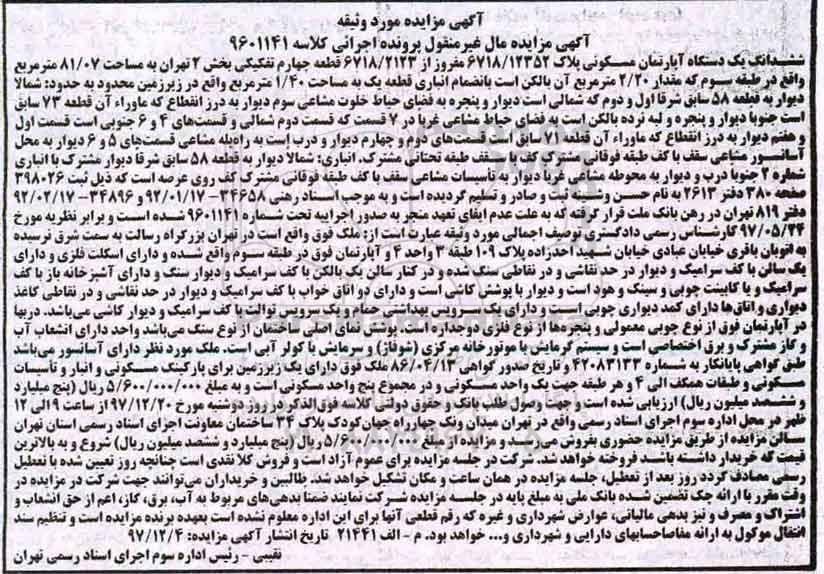 آگهی مزایده مورد وثیقه
آگهی مزایده مال غیرمنقول پرونده اجرائی کلاسه ۹۶۰۱۱۴۱
ششدانگ یک دستگاه آپارتمان مسکونی پلاک ۶۷۱۸/۱۲۳۵۲ مفروز از ۶۷۱۸/۲۱۲۳ قطعه چهارم تفکیکی بخش ۲ تهران به مساحت ۸۱/۰۷ مترمربع
واقع در طبقه سوم که مقدار ۲/۲۰ مترمربع آن بالکن است بانضمام انباری قطعه یک به مساحت ۱/۴۰ مترمربع واقع در زیرزمین محدود به حدود: شمالا
دیوار به قطعه ۵۸ سابق شرقا اول و دوم که شمالی است دیوار و پنجره به فضای حیاط خلوت مشاعی سوم دیوار به درز انقطاع که ماوراء آن قطعه ۷۳ سابق
است جنوبا دیوار و پنجره و لبه نرده بالکن است به فضای حیاط مشاعی غربا در ۷ قسمت که قسمت دوم شمالی و قسمت‌های ۴ و ۶ جنوبی است قسمت اول
و هفتم دیوار به درز انقطاع که ماوراء آن قطعه ۷۱ سابق است قسمت‌های دوم و چهارم دیوار و درب است به راه‌پله مشاعی قسمت‌های ۵ و ۶ دیوار به محل
آسانسور مشاعی سقف با کف طبقه فوقانی مشترک کف با سقف طبقه تحتانی مشترک. انباری: شمالا دیوار به قطعه ۵۸ سابق شرقا دیوار مشترک با انباری
شماره ۲ جنوبا درب و دیوار به محوطه مشاعی غربا دیوار به تأسیسات مشاعی سقف با کف طبقه فوقانی مشترک کف روی عرصه است که ذیل ثبت ۳۹۸۰۲۶
صفحه ۳۸۰ دفتر ۲۶۱۳ به نام حسن وشنیه ثبت و صادر و تسلیم گردیده است و به موجب اسناد رهنی ۳۴۶۵۸ - ۹۲/۰۱/۱۷ و ۳۴۸۹۶ - ۹۲/۰۲/۱۷
دفتر ۸۱۹ تهران در رهن بانک ملت قرار گرفته که به علت عدم ایفای تعهد منجر به صدور اجراییه تحت شماره ۹۶۰۱۱۴۱ شده است و برابر نظریه مورخ
۹۷/۰۵/۲۴ کارشناس رسمی دادگستری توصیف اجمالی مورد وثیقه عبارت است از: ملک فوق واقع است در تهران بزرگراه رسالت به سمت شرق نرسیده
به اتوبان باقری خیابان عبادی خیابان شهید احدزاده پلاک ۱۰۹ طبقه ۳ واحد ۴ و آپارتمان فوق در طبقه سوم واقع شده و دارای اسکلت فلزی و دارای
یک سالن با کف سرامیک و دیوار در حد نقاشی و در نقاطی سنگ شده و در کنار سالن یک بالکن با کف سرامیک و دیوار سنگ و دارای آشپزخانه باز با کف
سرامیک و با کابینت چوبی و سینک و هود است و دیوار با پوشش کاشی است و دارای دو اتاق خواب با کف سرامیک و دیوار در حد نقاشی و در نقاطی کاغذ
دیواری و اتاق‌ها دارای کمد دیواری چوبی است و دارای یک سرویس بهداشتی حمام و یک سرویس توالت با کف سرامیک و دیوار کاشی می‌باشد. دربها
در آپارتمان فوق از نوع چوبی معمولی و پنجره‌ها از نوع فلزی دوجداره است. پوشش نمای اصلی ساختمان از نوع سنگ می‌باشد واحد دارای انشعاب آب
و گاز مشترک و برق اختصاصی است و سیستم گرمایش با موتورخانه مرکزی (شوفاژ) و سرمایش با کولر آبی است. ملک مورد نظر دارای آسانسور می‌باشد
طبق گواهی پایانکار به شماره ۴۲۰۸۳۱۳۳ و تاریخ صدور گواهی ۸۶/۰۴/۱۳ ملک فوق دارای یک زیرزمین برای پارکینگ مسکونی و انبار و تأسیسات
مسکونی و طبقات همکف الی ۴ و هر طبقه جهت یک واحد مسکونی و در مجموع پنج واحد مسکونی است و به مبلغ ۵/۶۰۰/۰۰۰/۰۰۰ ریال (پنج میلیارد
و ششصد میلیون ریال) ارزیابی شده است و جهت وصول طلب بانک و حقوق دولتی کلاسه فوق‌الذکر در روز دوشنبه مورخ ۹۷/۱۲/۲۰ از ساعت ۹ الی ۱۲
ظهر در محل اداره سوم اجرای اسناد رسمی واقع در تهران میدان ونک چهارراه جهان کودک پلاک ۳۴ ساختمان معاونت اجرای اسناد رسمی استان تهران
سالن مزایده از طریق مزایده حضوری بفروش می‌رسد و مزایده از مبلغ ۵/۶۰۰/۰۰۰/۰۰۰ ریال (پنج میلیارد و ششصد میلیون ریال) شروع و به بالاترین
قیمت که خریدار داشته باشد فروخته خواهد شد. شرکت در جلسه مزایده برای عموم آزاد است و فروش کلا نقدی است چنانچه روز تعیین شده با تعطیل
رسمی مصادف گردد روز بعد از تعطیل، جلسه مزایده در همان ساعت و مکان تشکیل خواهد شد. طالبین و خریداران می‌توانند جهت شرکت در مزایده در
وقت مقرر با ارائه چک تضمین شده بانک ملی به مبلغ پایه در جلسه مزایده شرکت نمایند ضمنا بدهی‌های مربوط به آب، برق، گاز، اعم از حق انشعاب و
اشتراک و مصرف و نیز بدهی مالیاتی، عوارض شهرداری و غیره که رقم قطعی آنها برای این اداره معلوم نشده است بعهده برنده مزایده است و تنظیم سند
انتقال موکول به ارائه مفاصاحسابهای دارایی و شهرداری و... خواهد بود. م - الف ۲۱۴۴۱ تاریخ انتشار آگهی مزایده: ۹۷/۱۲/۴
نقیبی - رئیس اداره سوم اجرای اسناد رسمی تهران